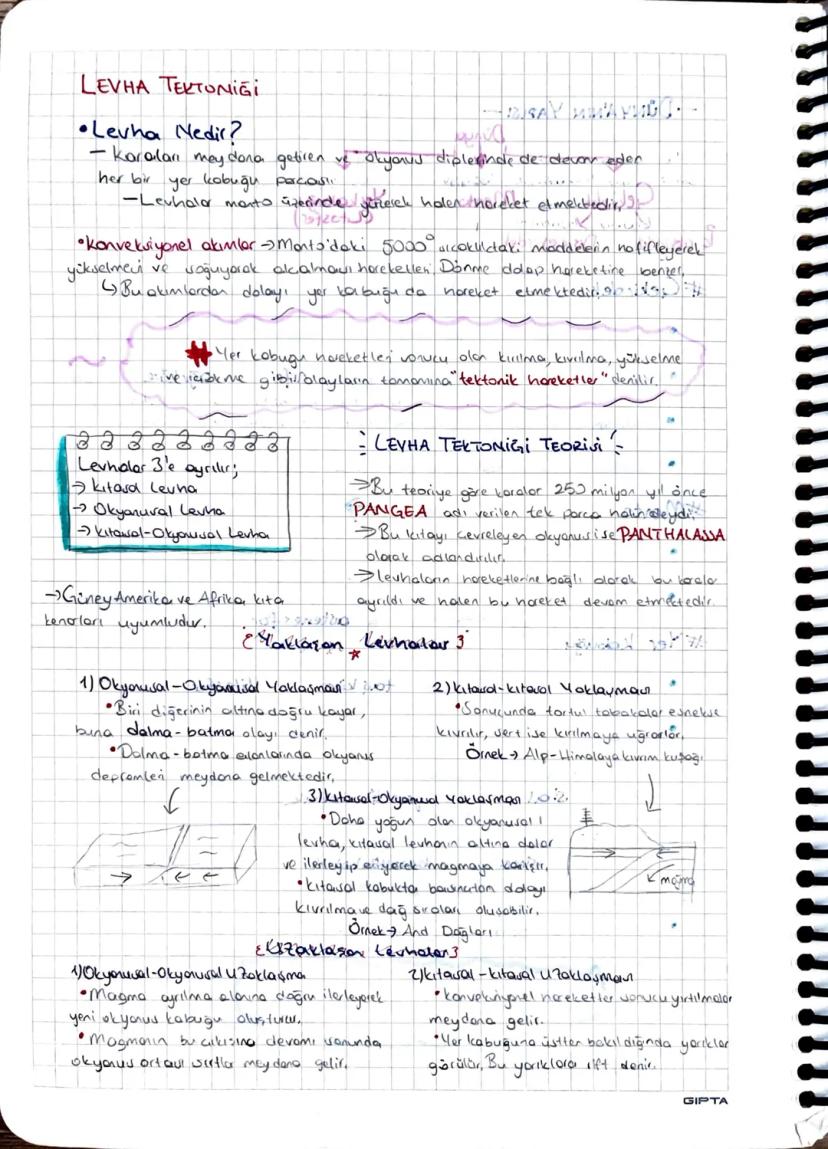 LEVHA TEKTONİĞİ
• Levha Nedir?
– Karaları meydana getiren ve okyanus diplerinde de devam eden
her bir yer kabuğu parçası.
– Levhalar manto üzerinde yüzerek halen hareket etmektedir.
• Konveksiyonel akımlar → Manto'daki 5000° sıcaklıktaki maddelerin hafifleyerek
yükselmesi ve soğuyarak alçalması hareketleri. Dönme dolap hareketine benzer.
↳ Bu akımlardan dolayı yer kabuğu da hareket etmektedir.
# Yer kabuğu hareketleri sonucu olan kırılma, kıvrılma, yükselme
ve çökme gibi olayların tamamına "tektonik hareketler" denilir.
Levhalar 3'e ayrılır;
→ Kıtasal Levha
→ Okyanusal Levha
→ Kıtasal-Okyanusal Levha
LEVHA TEKTONİĞİ TEORİSİ
→ Bu teoriye göre karalar 250 milyon yıl önce
PANGEA adı verilen tek parça halindeydi.
→ Bu kıtayı çevreleyen okyanus ise PANTHALASSA
olarak adlandırılır.
→ levhaların hareketlerine bağlı olarak bu karalar
ayrıldı ve halen bu hareket devam etmektedir.
→ Güney Amerika ve Afrika kıta
kenarları uyumludur.
Yaklaşan Levhalar
1) Okyanusal-Okyanusal Yaklaşması
• Biri diğerinin altına doğru kayar,
buna dalma-batma olayı denir.
• Dalma-batma alanlarında okyanus
depremleri meydana gelmektedir.
2) Kıtasal-kıtasal Yaklaşması
• Sonucunda tortul tabakalar esnekse
kıvrılır, sert ise kırılmaya uğrarlar.
Örnek → Alp-Himalaya kıvrım kuşağı
3) Kıtasal-Okyanusal Yaklaşması
• Daha yoğun olan okyanusal
levha, kıtasal levhanın altına dalar
ve ilerleyip eriyerek magmaya karışır.
• Kıtasal kabukta basınçtan dolayı
kıvrılma ve dağ sıraları oluşabilir.
Örnek → And Dağları
magma
Uzaklaşan Levhalar
1) Okyanusal-Okyanusal Uzaklaşma
• Magma ayrılma alanına doğru ilerleyerek
yeni okyanus kabuğu oluşturur.
• Magmanın bu çıkışına devamı sonunda
okyanus ortası sırtlar meydana gelir.
2) Kıtasal-kıtasal Uzaklaşması
• Konveksiyonel hareketler sonucu yırtılmalar
meydana gelir.
• Yer kabuğuna üstten bakıldığında yarıklar
görülür. Bu yarıklara rift denir.
GIPTA